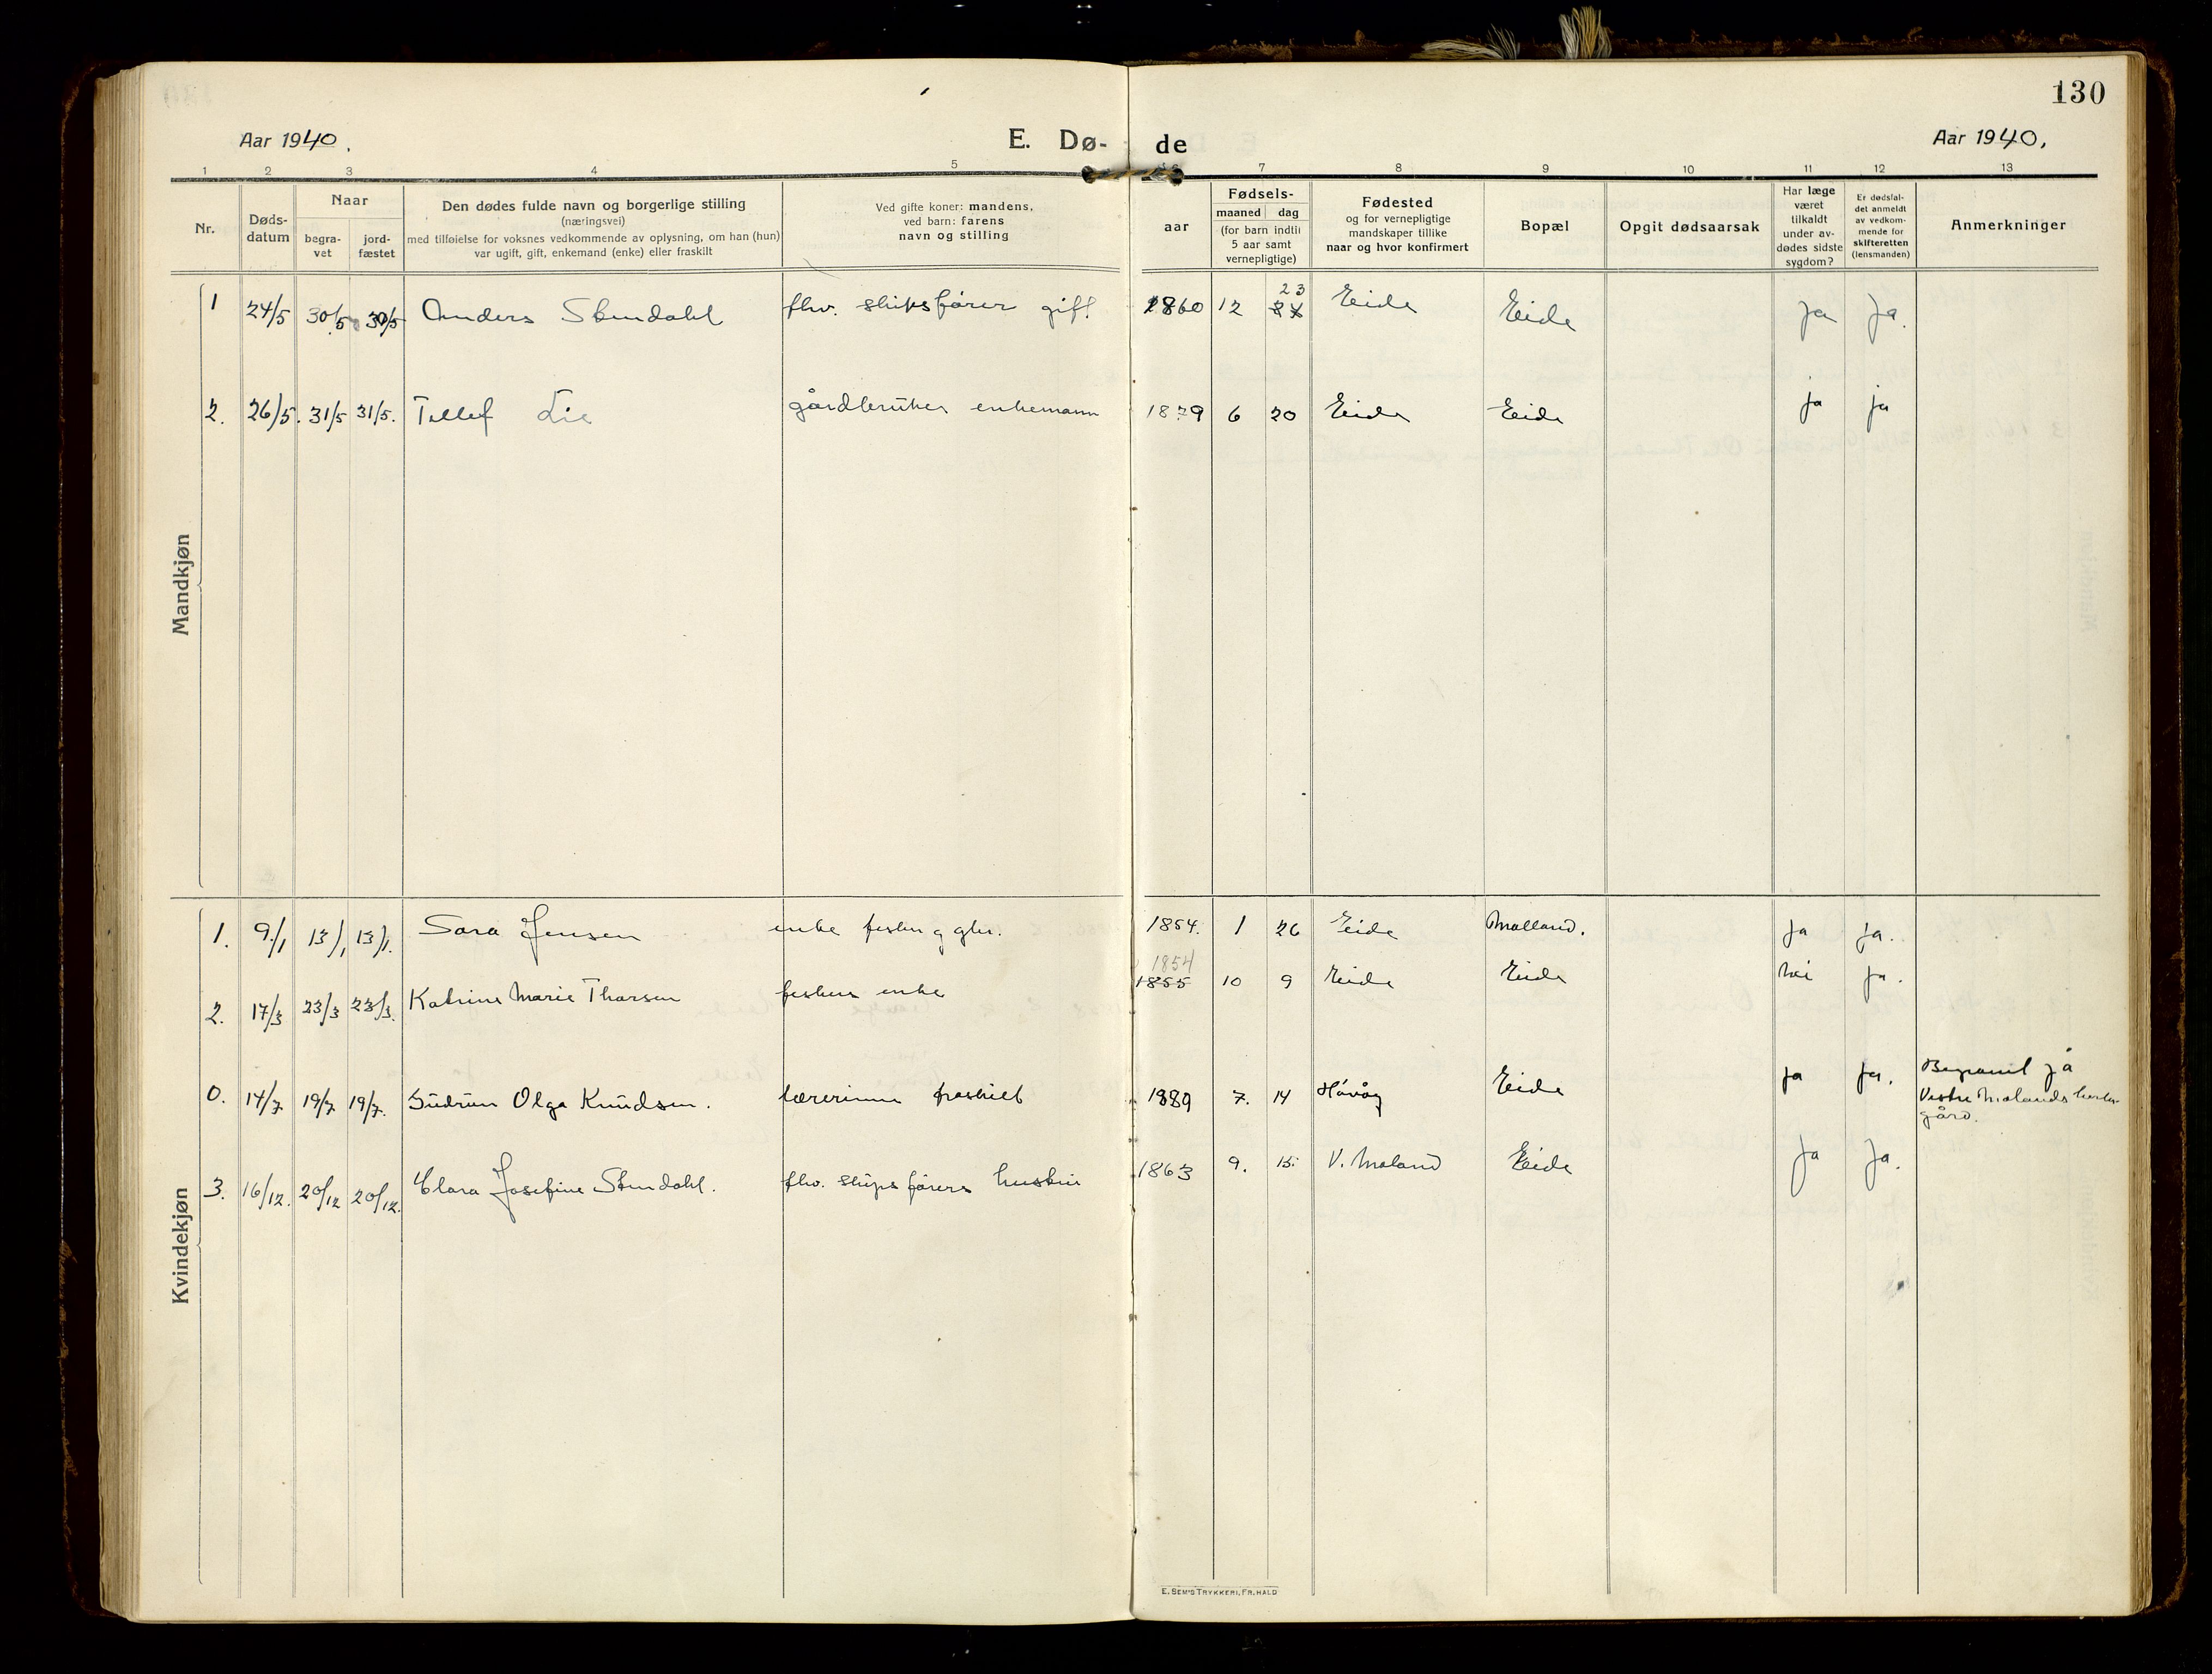 130
Aar 1940.
E. Dø- de
Aar 1940.
1 2 3 4 5 6 7 8 9 10 11 12 13
Nr.
Døds-
datum
Naar
begra-
vet
jord-
fæstet
Den dødes fulde navn og borgerlige stilling
(næringsvei)
med tilføielse for voksnes vedkommende av oplysning, om han (hun)
var ugift, gift, enkemand (enke) eller fraskilt
Ved gifte koner: mandens,
ved barn: farens
navn og stilling
Fødsels-
aar
maaned dag
(for barn indtil
5 aar samt
vernepligtige)
Fødested
og for vernepligtige
mandskaper tillike
naar og hvor konfirmert
Bopæl
Opgit dødsaarsak
Har læge
været
tilkaldt
under av-
dødes sidste
sygdom?
Er dødsfal-
det anmeldt
av vedkom-
mende for
skifteretten
(lensmanden)
Anmerkninger
Mandkjøn
23
1 24/5 30/5 30/5 Anders Stendahl fhv. skipsfører gift 1860 12 24 Eide Eide Ja Ja.
2. 26/5. 31/5 31/5. Tellef Lie gårdbruker enkemann 1879 6 20 Eide Eide ja ja
Kvindekjøn
1. 9/1 13/1 13/1. Sara Jensen enke 1854. 1 26 Eide Molland. Ja ja.
1854
2. 17/3 23/3 23/3. Katrine Marie Thorsen fiskers enke 1855 10 9 Eide Eide nei ja.
0. 14/7 19/7 19/7. Gudrun Olga Knudsen. lærerinne fraskilt 1889 7. 14 Høvåg Eide ja ja. Begravet på
Vestre Molands kirke-
gård.
3. 16/12. 20/12 20/12. Clara Josefine Stendahl. fhv. skipsførers hustru 1863 9. 15. V. Moland Eide Ja Ja.
E. SEM'S TRYKKERI, FR.HALD